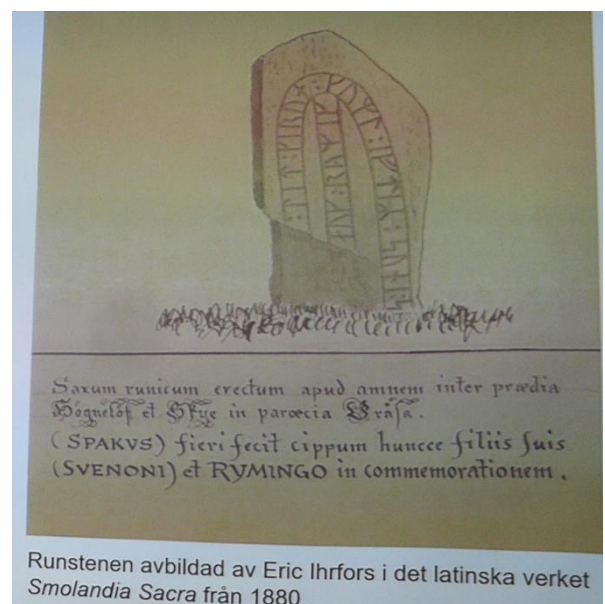 Saxum runicum erectum apud amnem inter prædia
Höguelöf et Skye in paroecia Uråsa.
(SPAKVS) fieri fecit cippum huncce filiis suis
(SVENONI) et RYMINGO in commemorationem.
Runstenen avbildad av Eric Ihrfors i det latinska verket
Smolandia Sacra från 1880